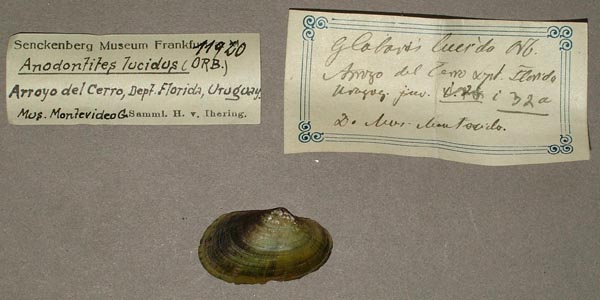 Senckenberg Museum Frankfurt 11920
Anodontites lucidus (ORB.)
Arroyo del Cerro, Dept. Florida, Uruguay.
Mus. Montevideo G. Samml. H. v. Ihering.
Glabaris lucida Orb.
Arroyo del Cerro dpt. Florida
Uruguay i 32a
D. Mus. Montevideo.